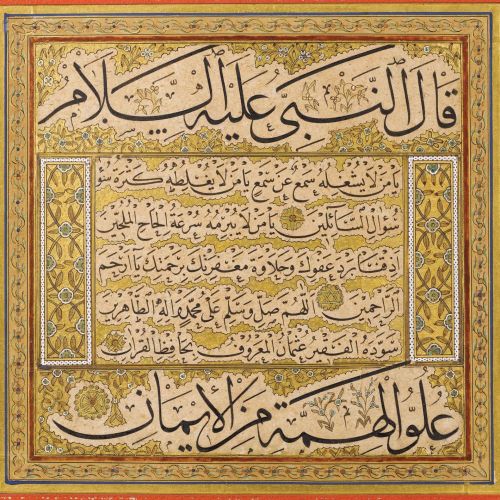 قال النبي عليه السلام
يا من لا يشغله سمع عن سمع يا من لا يغلطه كثرة
سؤال السائلين يا من لا يبرمه سرعة الحاح الملحين
ذقنا برد عفوك وحلاوة مغفرتك برحمتك يا ارحم
الراحمين اللهم صل وسلم على محمد واله الطاهرين
سوده الفقير عثمان المعروف بحافظ القرآن
علو الهمة من الإيمان